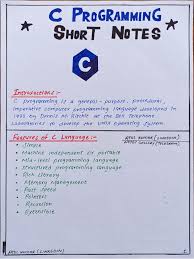 C PROGRAMMING
SHORT NOTES
C
Introduction :-
C programming is a general-purpose, procedural,
imperative computer programming language developed in
1972 by Dennis M. Ritchie at the Bell Telephone
Laboratories to develop the UNIX operating system.
Features of C Language :-
Simple
Machine Independent or Portable
Mid-level programming language
Structured programming language
Rich Library
Memory Management
Fast Speed
Pointers
Recursion
Extensible